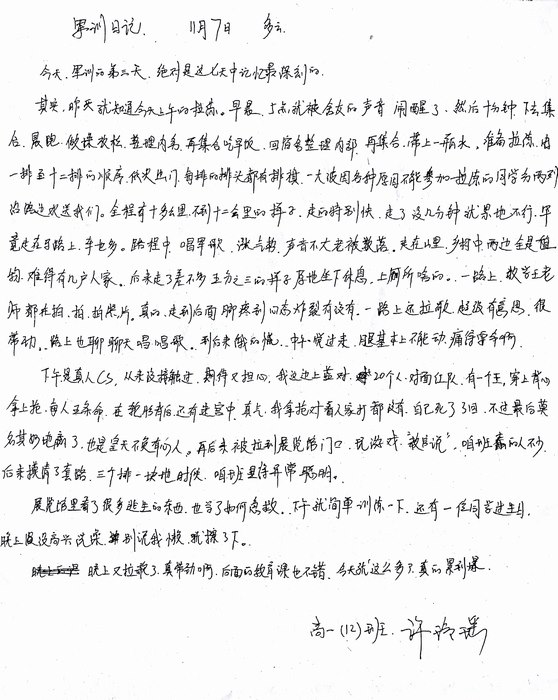 军训日记. 11月7日 多云
今天, 军训的第三天, 绝对是这七天中记忆最深刻的.
其实, 昨天就知道今天上午的拉练. 早晨, 5点就被舍友的声音闹醒了, 然后十分钟, 下去集
合, 晨跑, 做操放松, 整理内务, 再集合吃早饭, 回宿舍整理内部, 再集合, 带上一瓶水, 准备拉练, 由
一排至十二排的顺序, 依次出门, 每排的排头都有排旗. 一大波因各种原因不能参加拉练的同学分两列
沿路边欢送我们. 全程有十多公里, 不到十二公里的样子, 走的特别快, 走了没几分钟就累也不行. 毕
竟走在马路上, 车也多. 路程中, 唱军歌, 涨气势, 声音不大老被散落. 走在山里, 乡村中两边全是植
物, 难得有几户人家. 后来走了差不多五分之三的样子原地坐下休息, 上厕所啥的.. 一路上, 教官王老
师都在拍, 拍, 拍照片. 真的, 走到后面脚疼到回家炸裂有没有. 一路上还拉歌, 超级有意思, 很
带动.. 路上也聊聊天唱唱歌. 到后来饿的慌.. 中午吃过走, 腿基本上不能动, 痛得要命啊.
下午是真人CS, 从来没接触过, 期待又担心, 我这边上蓝对, 20个人, 对面红队, 有一个王, 穿上背心
拿上抢, 每人五条命, 在轮胎背后, 还有迷宫中, 真气, 我拿抢对着人家打都没有, 自己死了3回, 不过最后莫
名其妙地赢了, 也是皇天不负有心人. 再后来被拉到展览馆门口, 玩游戏, "教官说", 咱班蠢的人不少
后来摸清了套路, 三个排一块地时候, 咱班显得异常聪明.
展览馆里看了很多逃生的东西, 也学了如何急救.. 下午就简单训练一下, 还有一位同学过生日,
晚上没高兴洗澡, 别说我懒, 就擦了下.
晚上又拉歌了, 真带动啊, 后面的教育课也不错. 今天就这么多了, 真的累到爆.
高一(12)班. 许玲瑶